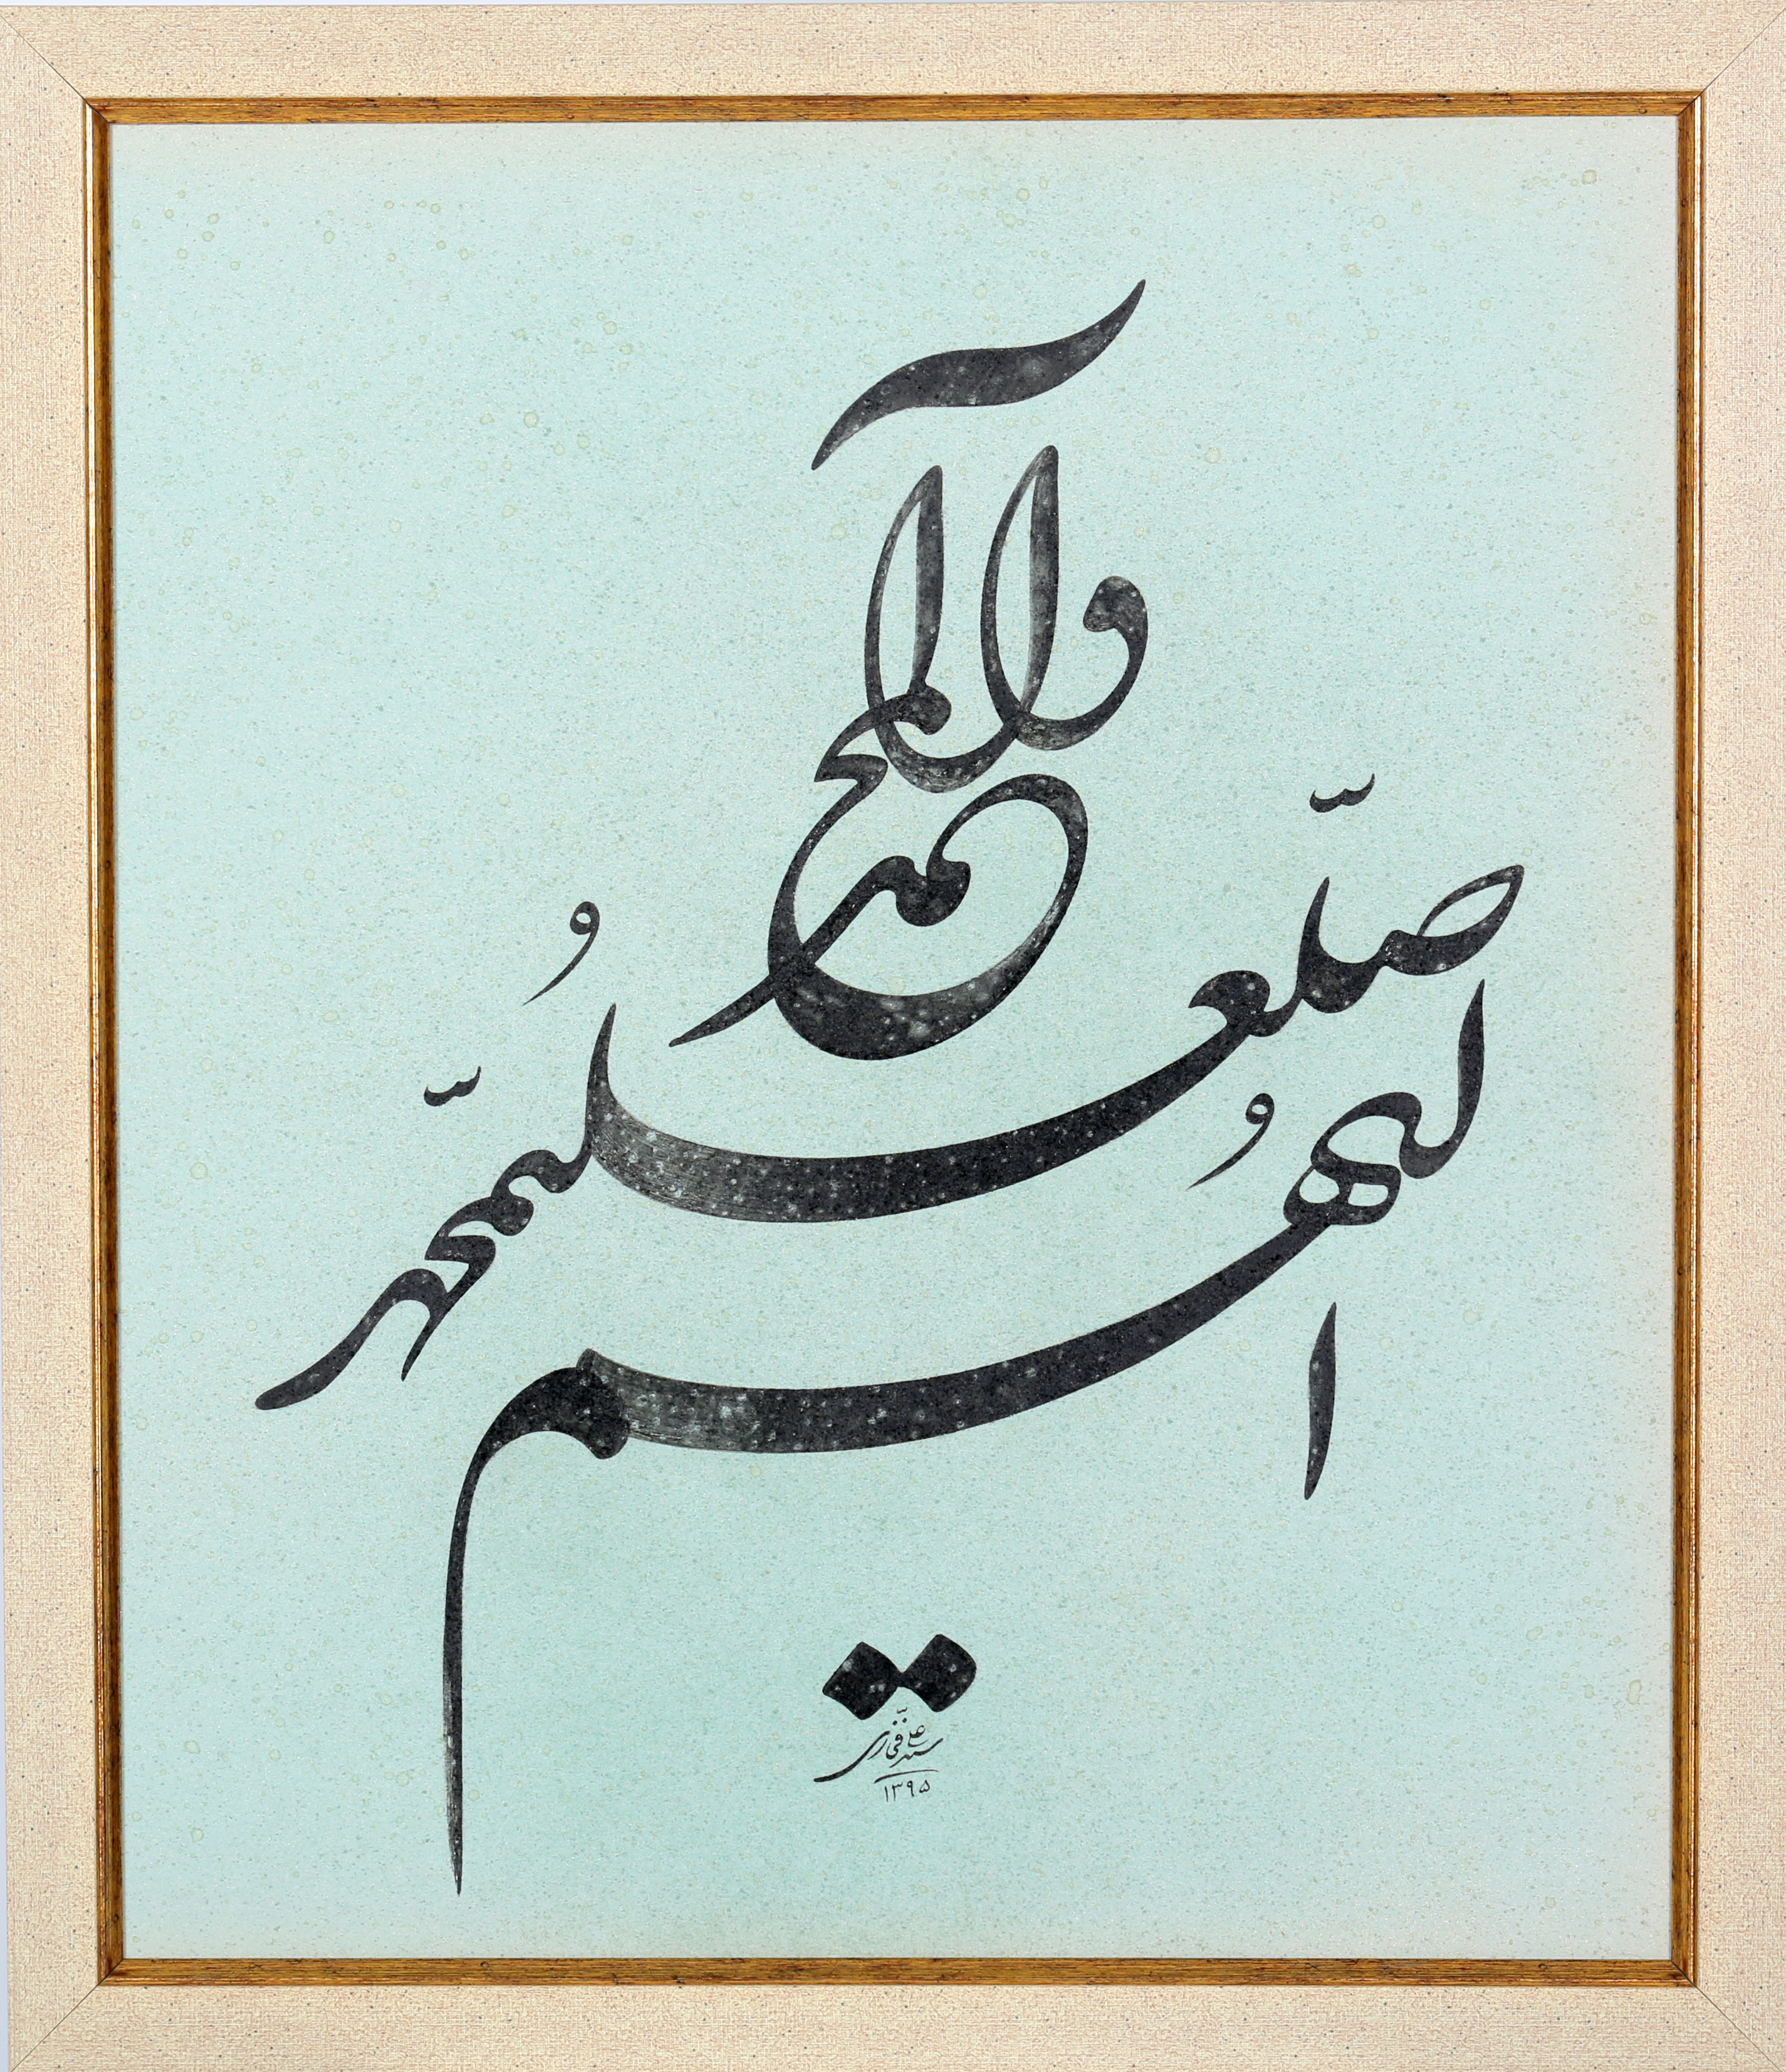 اللهم
صلّ علی محمّد
وآل محمد
سید علی
۱۳۹۵